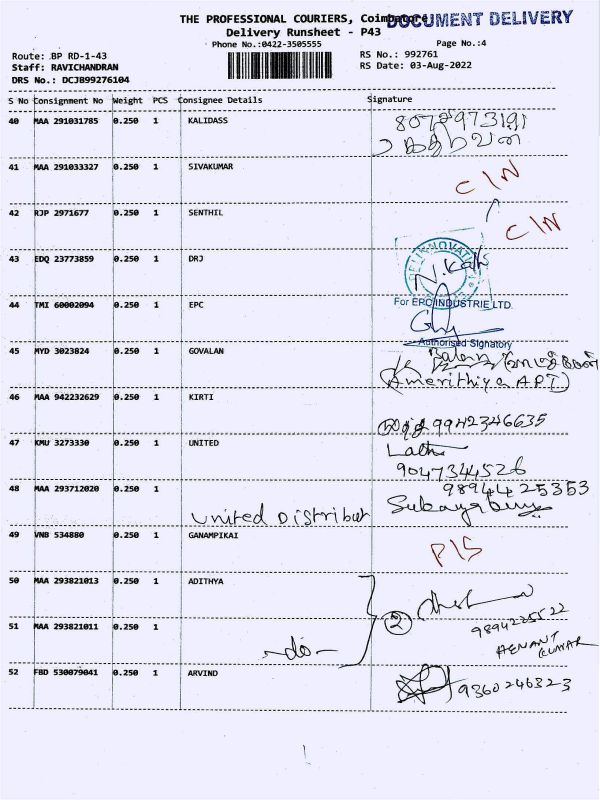 THE PROFESSIONAL COURIERS, Coimbatore
DOCUMENT DELIVERY
Delivery Runsheet - P43
Phone No.:0422-3505555
Page No.:4
Route: .BP RD-1-43
RS No.: 992761
Staff: RAVICHANDRAN
RS Date: 03-Aug-2022
DRS No.: DCJB99276104
S No Consignment No Weight PCS Consignee Details Signature
40 MAA 291031785 0.250 1 KALIDASS 8072973191
41 MAA 291033327 0.250 1 SIVAKUMAR C/N
42 RJP 2971677 0.250 1 SENTHIL C/N
43 EDQ 23773859 0.250 1 DRJ
44 TMI 60002094 0.250 1 EPC
For EPC INDUSTRIE LTD.
Authorised Signatory
45 MYD 3023824 0.250 1 GOVALAN Balan
(Amerithiya APT)
46 MAA 942232629 0.250 1 KIRTI
9942346635
47 KMU 3273330 0.250 1 UNITED
9047344526
48 MAA 293712020 0.250 1 United Distribut
9894425353
49 VNB 534880 0.250 1 GANAMPIKAI P/S
50 MAA 293821013 0.250 1 ADITHYA
2
9894225522
51 MAA 293821011 0.250 1 -do-
HENANT
KUMAR
52 FBD 530079041 0.250 1 ARVIND 9360246323